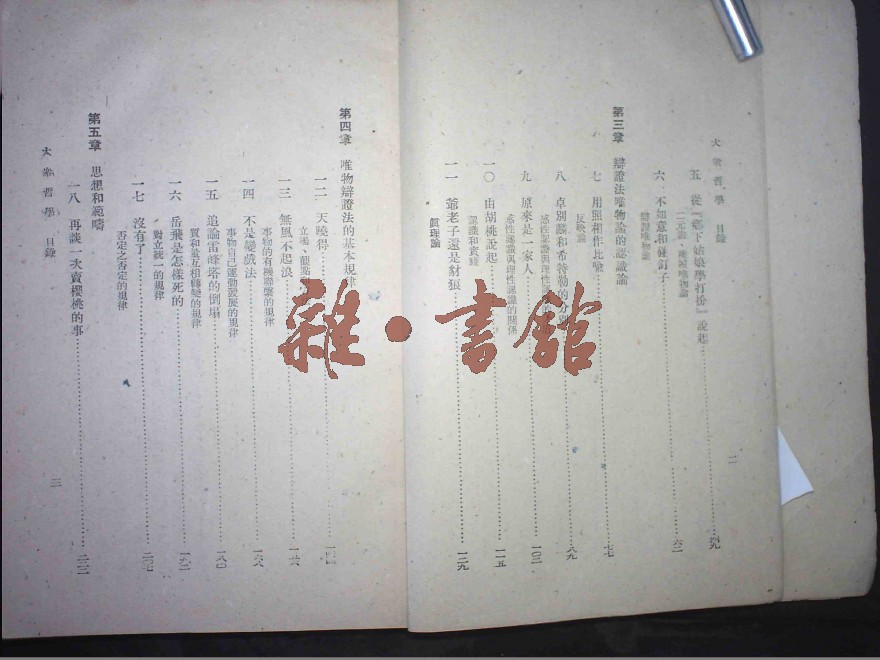 大衆哲學 目錄
二
五 從『鄉下姑娘學打扮』說起 四九
二元論、機械唯物論
六 不如意和碰釘子 六二
辯證唯物論
第三章 辯證法唯物論的認識論
七 用照相作比喩 七七
反映論
八 卓別麟和希特勒的分別 八九
感性認識與理性認識的
九 原來是一家人 一〇三
感性認識與理性認識的關係
一〇 由胡桃說起 一一五
認識和實踐
一一 爺老子還是豺狼 一二九
眞理論
第四章 唯物辯證法的基本規律
一二 天曉得
立場、觀點
一三 無風不起浪
一四 不是變戲法 一六八
事物的有機聯繫的規律
事物自己運動發展的規律
一五 追論雷峰塔的倒塌 一八〇
質和量互相轉變的規律
一六 岳飛是怎樣死的 一九二
對立統一的規律
一七 沒有了 二〇七
否定之否定的規律
第五章 思想和範疇
一八 再談一次賣櫻桃的事 二二二
大衆哲學 目錄
三
雜·書館